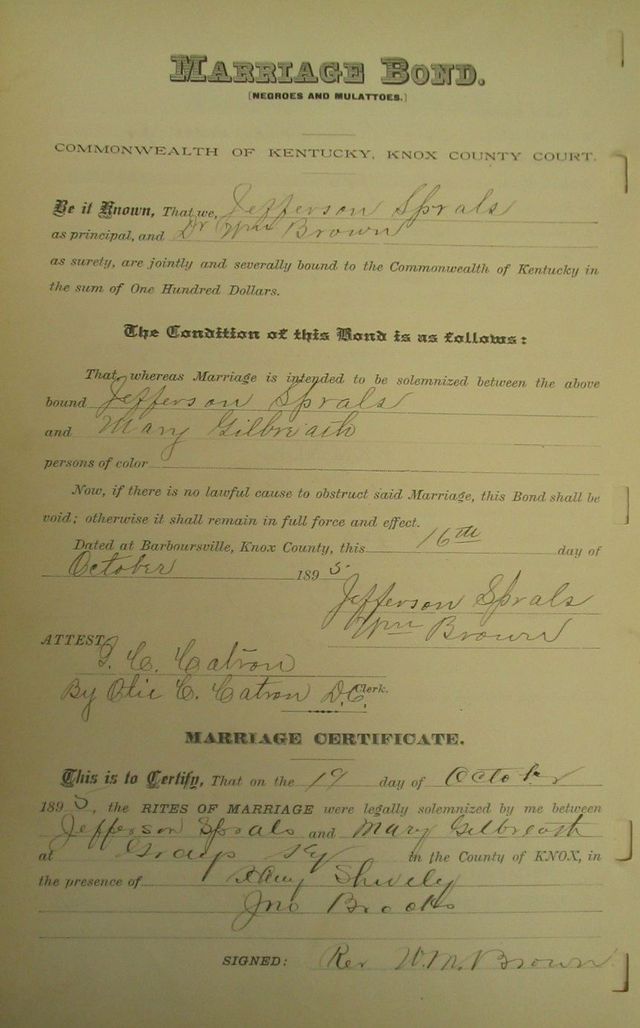 MARRIAGE BOND.
[NEGROES AND MULATTOES.]
COMMONWEALTH OF KENTUCKY, KNOX COUNTY COURT.
Be it Known, That we, Jefferson Sprals
as principal, and Dr Wm Brown
as surety, are jointly and severally bound to the Commonwealth of Kentucky in
the sum of One Hundred Dollars.
The Condition of this Bond is as follows:
That, whereas Marriage is intended to be solemnized between the above
bound Jefferson Sprals
and Mary Gilbreath
persons of color
Now, if there is no lawful cause to obstruct said Marriage, this Bond shall be
void; otherwise it shall remain in full force and effect.
Dated at Barboursville, Knox County, this 16th day of
October 1895.
Jefferson Sprals
Wm Brown
ATTEST
C. Catron
By Olie C. Catron D.C. Clerk.
MARRIAGE CERTIFICATE.
This is to Certify, That on the 19 day of October
1895, the RITES OF MARRIAGE were legally solemnized by me between
Jefferson Sprals and Mary Gilbreath
at Grays Ky in the County of KNOX, in
the presence of Shively
Jno Brooks
SIGNED: Rev W.M. Brown